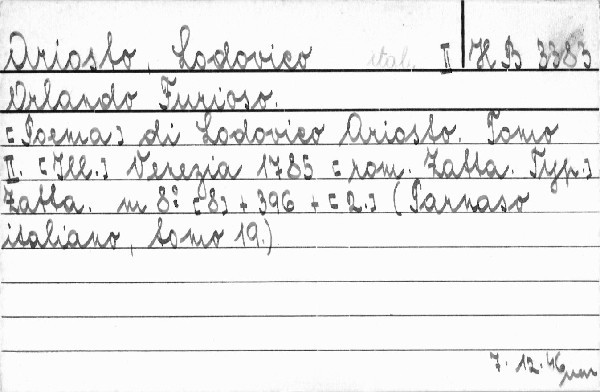 Ariosto, Lodovico ital. II H B 3383
Orlando Furioso.
[Poema] di Lodovico Ariosto. Tomo
II. [Ill.] Venezia 1785 [rom. Zatta. Typ.]
Zatta. m 8° [8] + 396 + [2.] (Parnaso
italiano, tomo 19.)
7. 12. 46